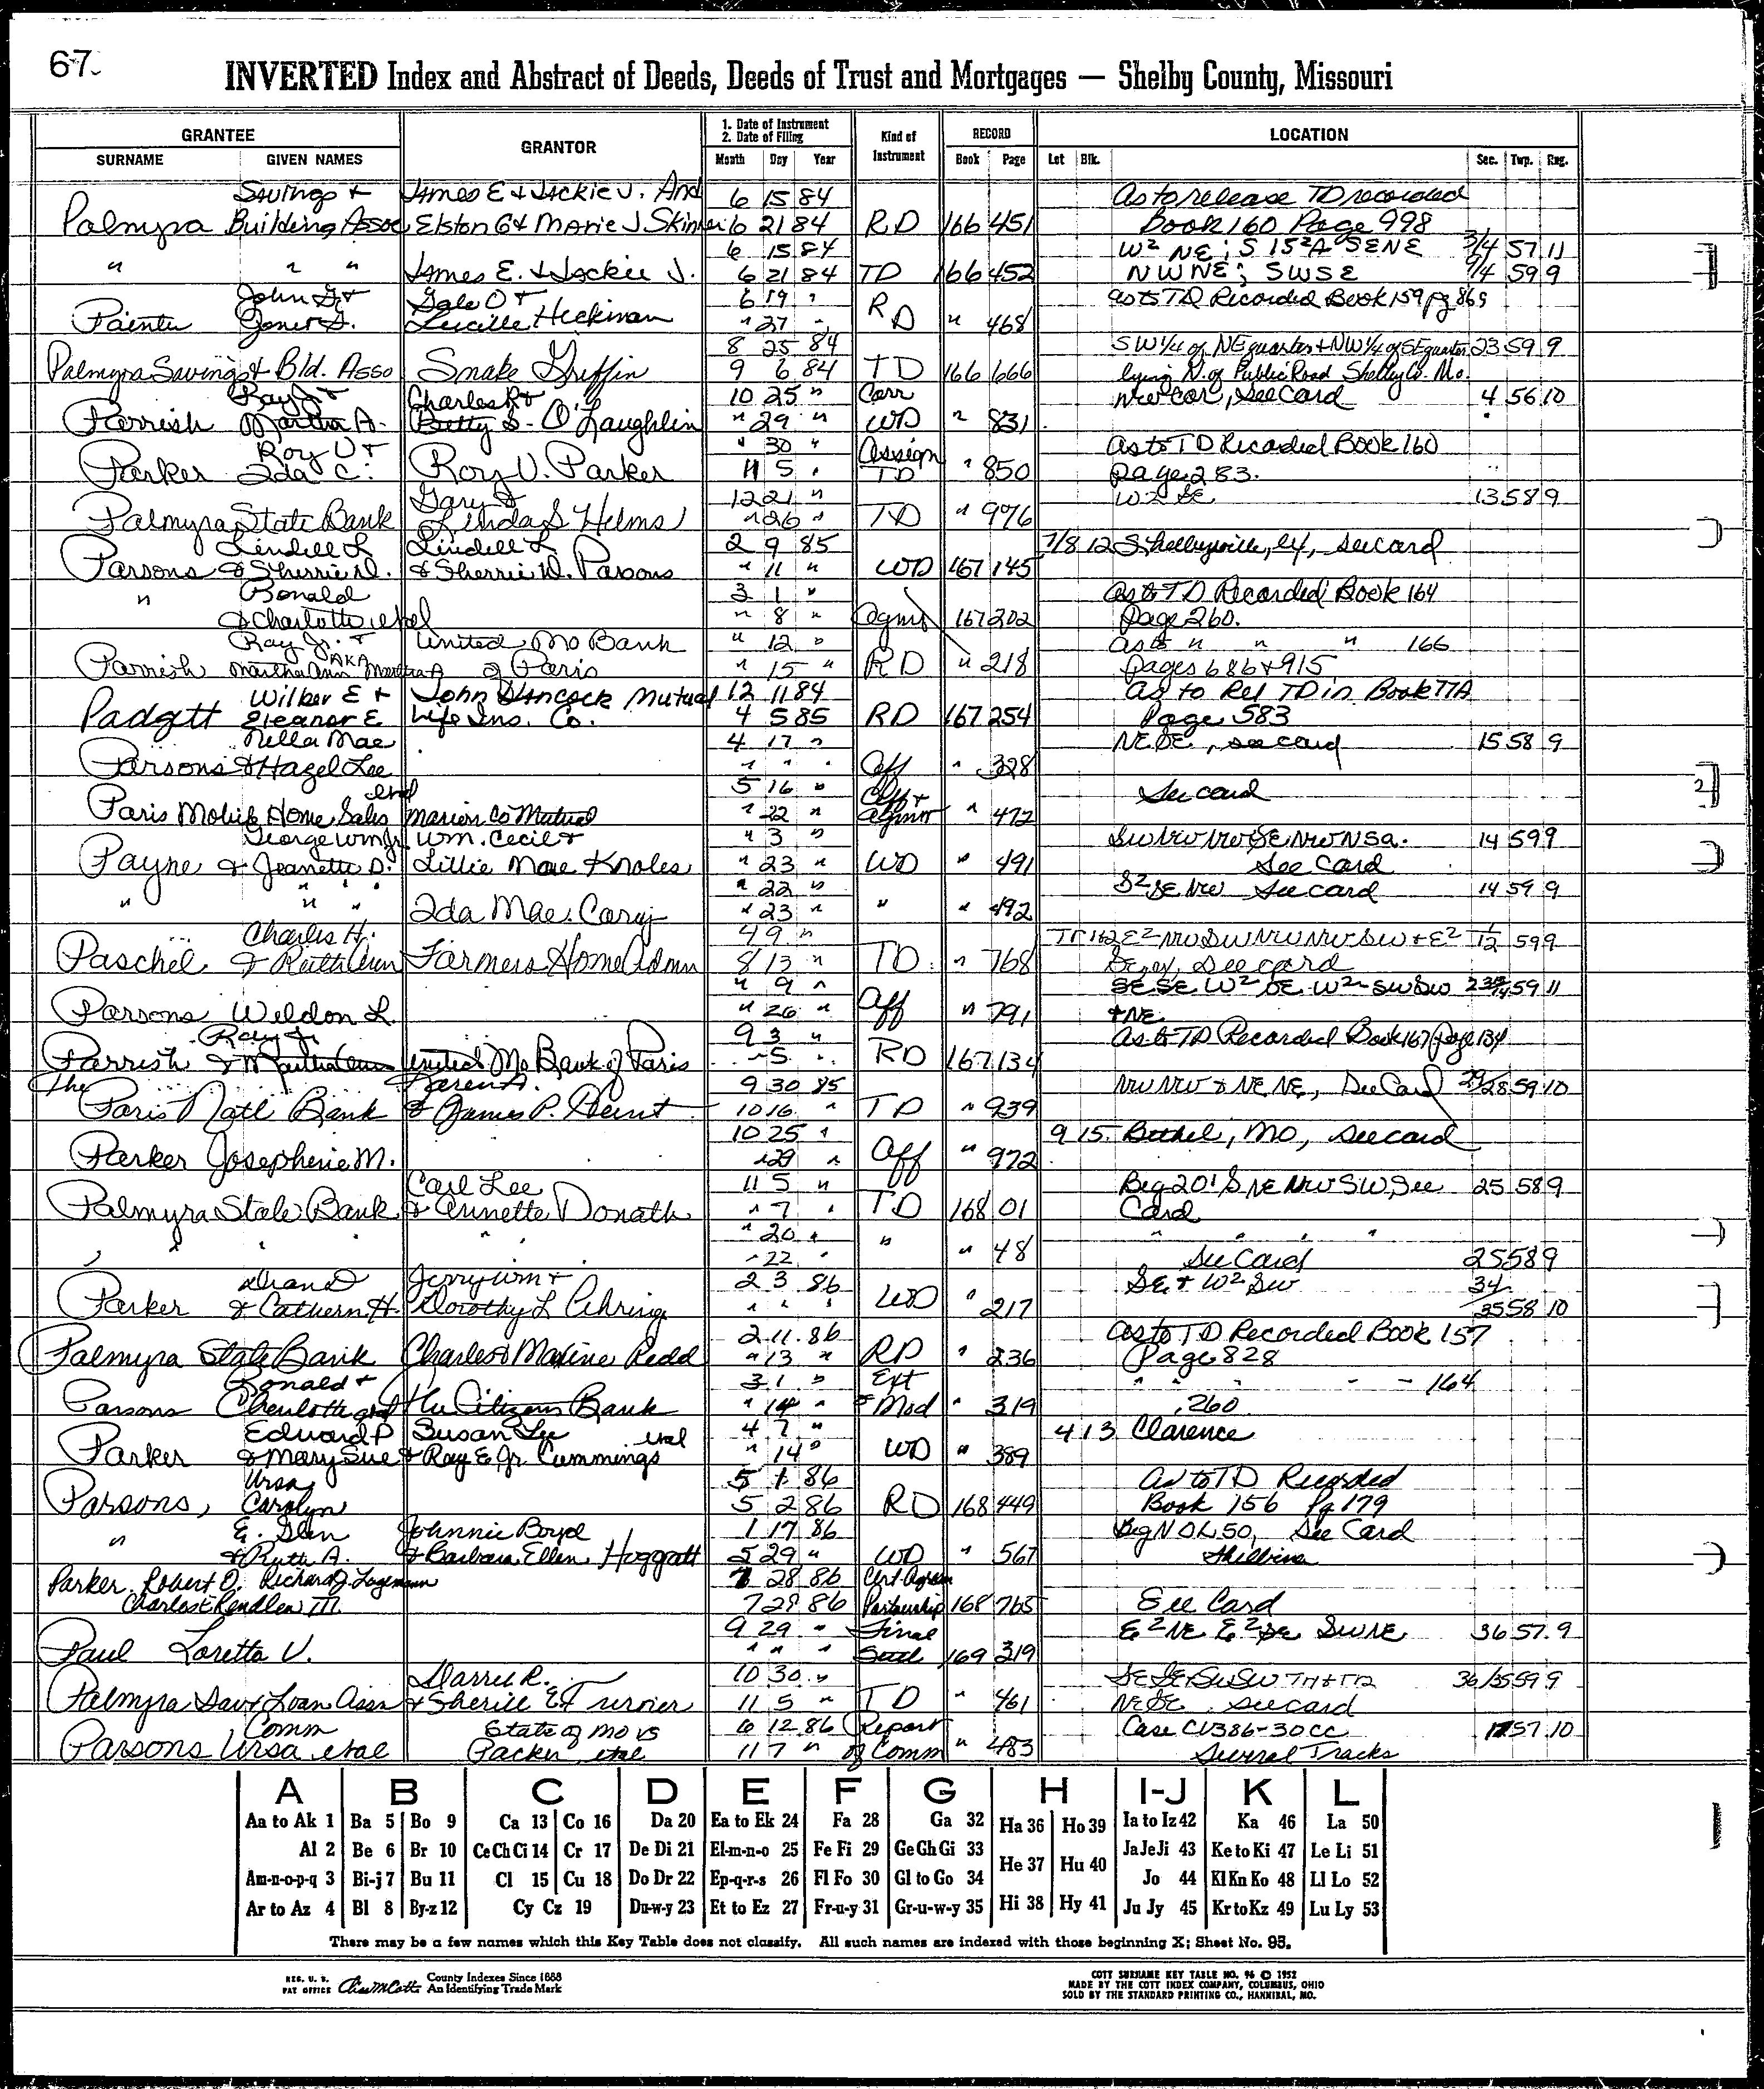 67.
INVERTED Index and Abstract of Deeds, Deeds of Trust and Mortgages — Shelby County, Missouri
GRANTEE GRANTOR 1. Date of Instrument 2. Date of Filing Kind of Instrument RECORD LOCATION
SURNAME GIVEN NAMES Month Day Year Book Page Lot Blk. Sec. Twp. Rng.
Savings & James E & Jackie J. And 6 15 84 As to release TD recorded
Palmyra Building Assoc Elston G & Marie J Skinner 6 21 84 RD 166 451 Book 160 Page 998
6 15 84 W² NE; S 15²A SENE 3/4 57 11
" " " James E. & Jackie J. 6 21 84 TD 166 452 NWNE; SWSE 9/4 59 9
John G & Gale O & 6 19 " as to TD Recorded Book 159 pg 869
Painter Lucille Heckman " 27 " RD " 468
8 25 84 SW 1/4 of NE quarter & NW 1/4 of SE quarter 23 59 9
Palmyra Savings & Bld. Asso Snake Griffin 9 6 84 TD 166 666 lying N. of Public Road Shelby Co. Mo.
Ray J & Charles R & 10 25 " Corr NW cor, See Card 4 56 10
Parrish Martha A. Betty S. O'Laughlin " 29 " WD " 831
Roy V & " 30 " Assign As to TD Recorded Book 160
Parker Ida C. Roy V. Parker 11 5 " TD " 850 page 283.
Gary & 12 21 " W2 SE 13 58 9
Palmyra State Bank Linda S Helms " 26 " TD " 976
Lindell L Lindell L 2 9 85 7/8 12 Shelbyville, ex, see card
Parsons & Sherrie D. & Sherrie D. Parsons " 11 " WD 167 145
" Ronald 3 1 " As to TD Recorded Book 164
& Charlotte etal " 8 " Agmt 167 202 Page 260.
Ray Jr. & United Mo Bank " 12 " as to " " " 166
Parrish Martha Ann AKA Martha A of Paris " 15 " RD " 218 pages 686 & 915
Wilber E & John Hancock Mutual 12 11 84 as to Rel TD in Book 77A
Padgett Eleanor E Life Ins. Co. 4 5 85 RD 167 254 Page 583
Nella Mae 4 17 " NE SE, see card 15 58 9
Parsons & Hazel Lee " " " Aff " 328
etal 5 16 " See card
Paris Mobile Home Sales Marion Co Mutual " 22 " " 472
George Wm Jr Wm. Cecil & " 3 " SW NW NW SE NW N 5a. 14 59 9
Payne & Jeanette D. Lillie Mae Knoles " 23 " WD " 491 See Card
" 22 " S² SE NW See card 14 59 9
" " " Ida Mae Cary " 23 " " " 492
Charles H. 4 9 " Tr 1&2 E² NW SW NW NW SW & E² 1/12 59 9
Paschel & Ruth Ann Farmers Home Admn 8 13 " TD " 768 SE, ex, see card
" 9 " SE SE W² SE W² SW SW 59 11
Parsons Weldon L. " 26 " Aff " 791 & NE
Ray Jr 9 3 " As to TD Recorded Book 167 page 134
Parrish & Martha Ann United Mo Bank of Paris " 5 " RD 167 134
The Karen A. 9 30 85 NW NW & NE NE, See Card 29/28 59 10
Paris Natl Bank & James P. Hunt 10 16 " TD " 939
10 25 " 9 15 Bethel, MO, see card
Parker Josephine M. " 29 " Aff " 972
Carl Lee 11 5 " Beg 20' S NE NW SW, See 25 58 9
Palmyra State Bank & Annette Donath " 7 " TD 168 01 Card
" 20 " " " " "
" " " " " " 22 " " " 48 See Card 25 58 9
Jerry Wm & 2 3 86 SE & W² SW 34
Parker & Cathern H. Dorothy L Gehring " " " WD " 217 35 58 10
2 11 86 As to TD Recorded Book 157
Palmyra State Bank Charles & Maxine Redd " 13 " RD " 236 Page 828
Ronald & 3 1 " Ext " " " - - 164
Parsons Charlotte etal The Citizens Bank " 14 " & Mod " 319 , 260
Edward P Susan Lee etal 4 7 " 4 13 Clarence
Parker & Mary Sue & Ray E Jr. Cummings " 14 " WD " 389
Ursa 5 1 86 As to TD Recorded
Parsons, Carolyn 5 2 86 RD 168 449 Book 156 Pg 179
E. Glen Johnnie Boyd 1 17 86 Beg N OL 50, See Card
" & Ruth A. & Barbara Ellen Hoggatt 5 29 " WD " 567 Shelbina
Parker, Robert O. Richard J. Lagemann 7 28 86 Cert Agreem
Charles E Rendlen III 7 28 86 Partnership 168 765 See Card
9 29 " Final E² NE E² SE SWNE 36 57 9
Paul Loretta V. " " " Settl 169 319
Darrel R. 10 30 " SE SE & SW SW 36/35 59 9
Palmyra Sav & Loan Assn & Sherill E Turner 11 5 " TD " 461 NE SE see card
Comm State of Mo vs 6 12 86 Report Case CV386-30CC 17 57 10
Parsons Ursa etal Packer etal 11 7 " of Comm " 483 Several Tracks
A B C D E F G H I-J K L
Aa to Ak 1 Ba 5 Bo 9 Ca 13 Co 16 Da 20 Ea to Ek 24 Fa 28 Ga 32 Ha 36 Ho 39 Ia to Iz 42 Ka 46 La 50
Al 2 Be 6 Br 10 Ce Ch Ci 14 Cr 17 De Di 21 El-m-n-o 25 Fe Fi 29 Ge Gh Gi 33 He 37 Hu 40 Ja Je Ji 43 Ke to Ki 47 Le Li 51
Am-n-o-p-q 3 Bi-j 7 Bu 11 Cl 15 Cu 18 Do Dr 22 Ep-q-r-s 26 Fl Fo 30 Gl to Go 34 Jo 44 Kl Kn Ko 48 Ll Lo 52
Ar to Az 4 Bl 8 By-z 12 Cy Cz 19 Du-w-y 23 Et to Ez 27 Fr-u-y 31 Gr-u-w-y 35 Hi 38 Hy 41 Ju Jy 45 Kr to Kz 49 Lu Ly 53
There may be a few names which this Key Table does not classify. All such names are indexed with those beginning X; Sheet No. 95.
REG. U. S. PAT OFFICE County Indexes Since 1888 An Identifying Trade Mark
COTT SURNAME KEY TABLE NO. 96 © 1952
MADE BY THE COTT INDEX COMPANY, COLUMBUS, OHIO
SOLD BY THE STANDARD PRINTING CO., HANNIBAL, MO.